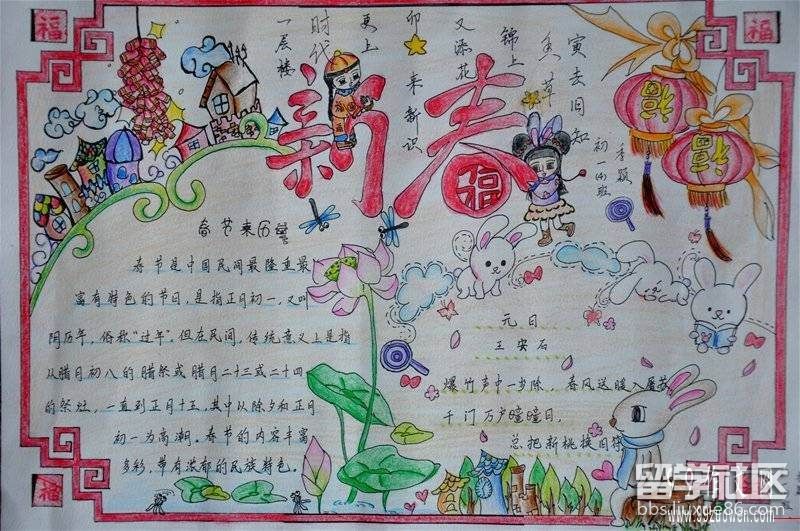 福
福
寅去旧知
鱼草
锦上
又添花
卯
来新识
更上
时代
一层楼
新春
福
福
福
李颖
初一(4)班
春节来历
春节是中国民间最隆重最
富有特色的节日，是指正月初一，又叫
阴历年，俗称“过年”。但在民间，传统意义上是指
从腊月初八的腊祭或腊月二十三或二十四
的祭灶，一直到正月十五，其中以除夕和正月
初一为高潮。春节的内容丰富
多彩，带有浓郁的民族特色。
元日
王安石
爆竹声中一岁除，春风送暖入屠苏
千门万户曈曈日，
总把新桃换旧符
福
留学社区
bbs.liuxue86.com